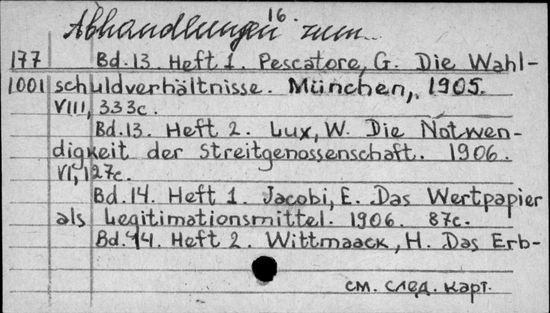 16.
Abhandlungen zum...
177 Bd. 13. Heft 1. Pescatore, G. Die Wahl-
1001 schuldverhältnisse. München, 1905.
VIII, 333c.
Bd. 13. Heft 2. Lux, W. Die Notwen-
digkeit der Streitgenossenschaft. 1906.
VI, 127c.
Bd. 14. Heft 1. Jacobi, E. Das Wertpapier
als Legitimationsmittel. 1906. 87c.
Bd. 14. Heft 2. Wittmaack, H. Das Erb-
см. след. карт.